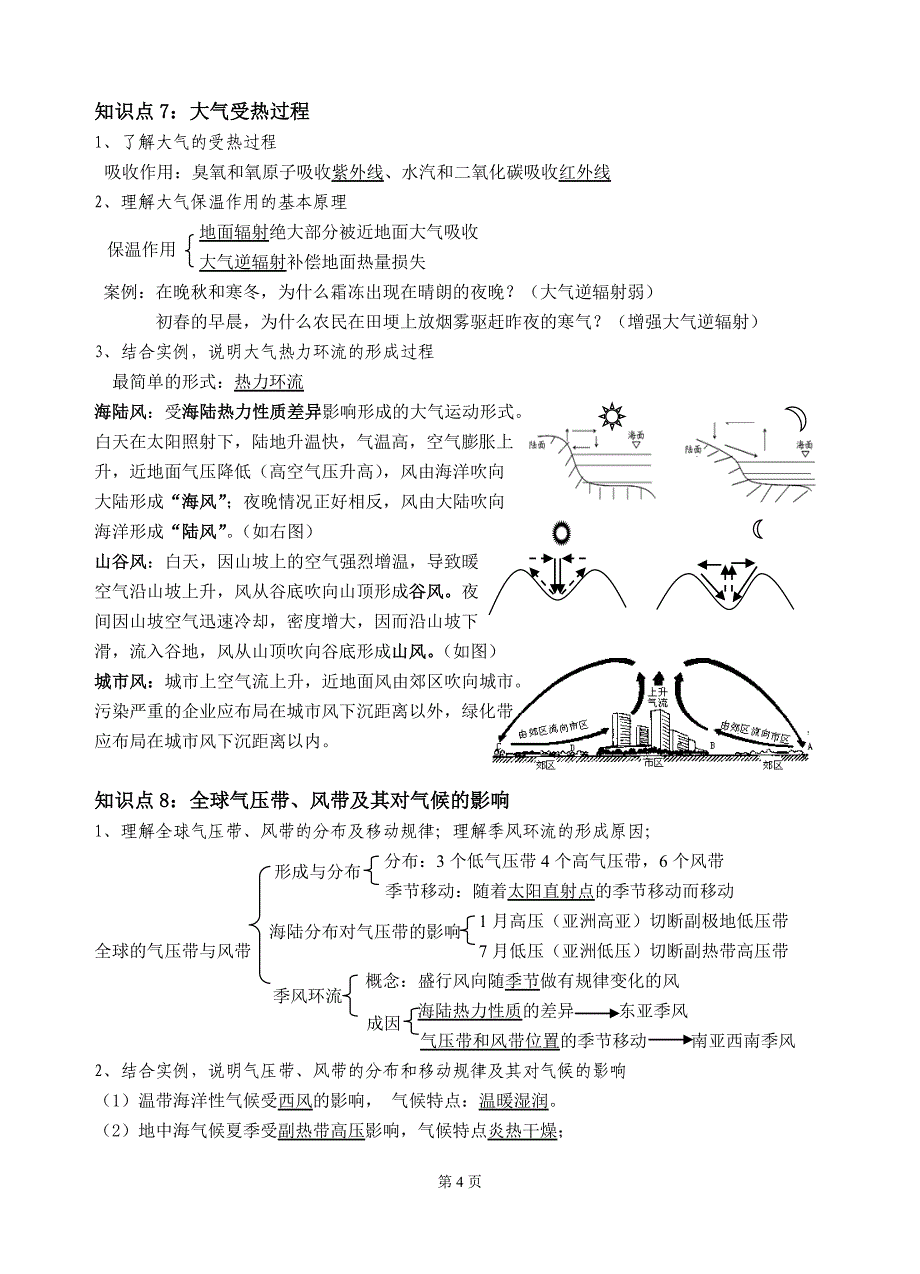 知识点 7：大气受热过程
1、了解大气的受热过程
吸收作用：臭氧和氧原子吸收紫外线、水汽和二氧化碳吸收红外线
2、理解大气保温作用的基本原理
地面辐射绝大部分被近地面大气吸收
保温作用
大气逆辐射补偿地面热量损失
案例：在晚秋和寒冬，为什么霜冻出现在晴朗的夜晚？（大气逆辐射弱）
初春的早晨，为什么农民在田埂上放烟雾驱赶昨夜的寒气？（增强大气逆辐射）
3、结合实例，说明大气热力环流的形成过程
最简单的形式：热力环流
海陆风：受海陆热力性质差异影响形成的大气运动形式。
白天在太阳照射下，陆地升温快，气温高，空气膨胀上
升，近地面气压降低（高空气压升高），风由海洋吹向
大陆形成“海风”；夜晚情况正好相反，风由大陆吹向
海洋形成“陆风”。（如右图）
陆面
海面
陆面
海面
山谷风：白天，因山坡上的空气强烈增温，导致暖
空气沿山坡上升，风从谷底吹向山顶形成谷风。夜
间因山坡空气迅速冷却，密度增大，因而沿山坡下
滑，流入谷地，风从山顶吹向谷底形成山风。（如图）
城市风：城市上空气流上升，近地面风由郊区吹向城市。
污染严重的企业应布局在城市风下沉距离以外，绿化带
应布局在城市风下沉距离以内。
上升
气流
由郊区流向市区
由郊区流向市区
B
A
郊区
市区
郊区
知识点 8：全球气压带、风带及其对气候的影响
1、理解全球气压带、风带的分布及移动规律；理解季风环流的形成原因；
分布：3 个低气压带 4 个高气压带，6 个风带
形成与分布
季节移动：随着太阳直射点的季节移动而移动
1 月高压（亚洲高亚）切断副极地低压带
海陆分布对气压带的影响
全球的气压带与风带
7 月低压（亚洲低压）切断副热带高压带
概念：盛行风向随季节做有规律变化的风
季风环流
海陆热力性质的差异
东亚季风
成因
气压带和风带位置的季节移动
南亚西南季风
2、结合实例，说明气压带、风带的分布和移动规律及其对气候的影响
（1）温带海洋性气候受西风的影响， 气候特点：温暖湿润。
（2）地中海气候夏季受副热带高压影响，气候特点炎热干燥；
第 4 页